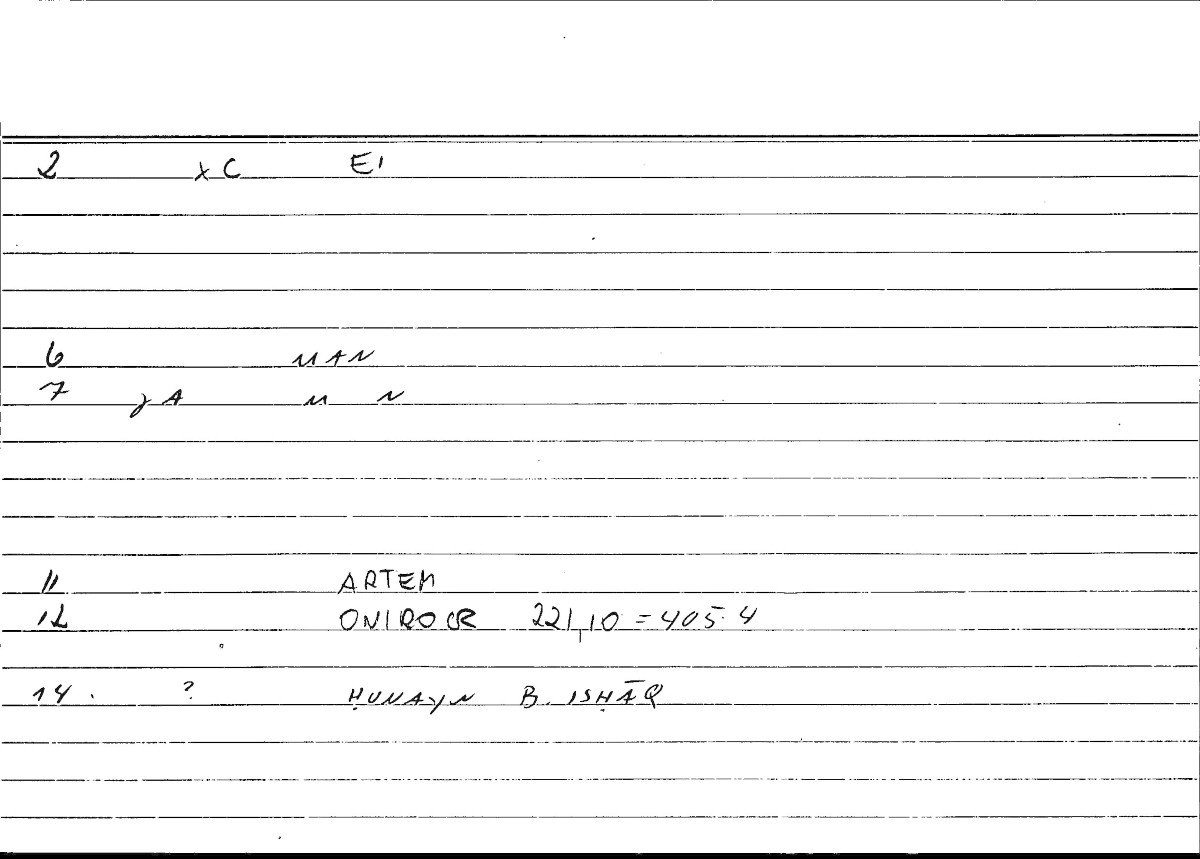 2 xC EI
6 MAN
7 jA M N
11 ARTEM
12 ONIROCR 221,10 = 405.4
14. ? ḤUNAYN B. ISḤĀQ